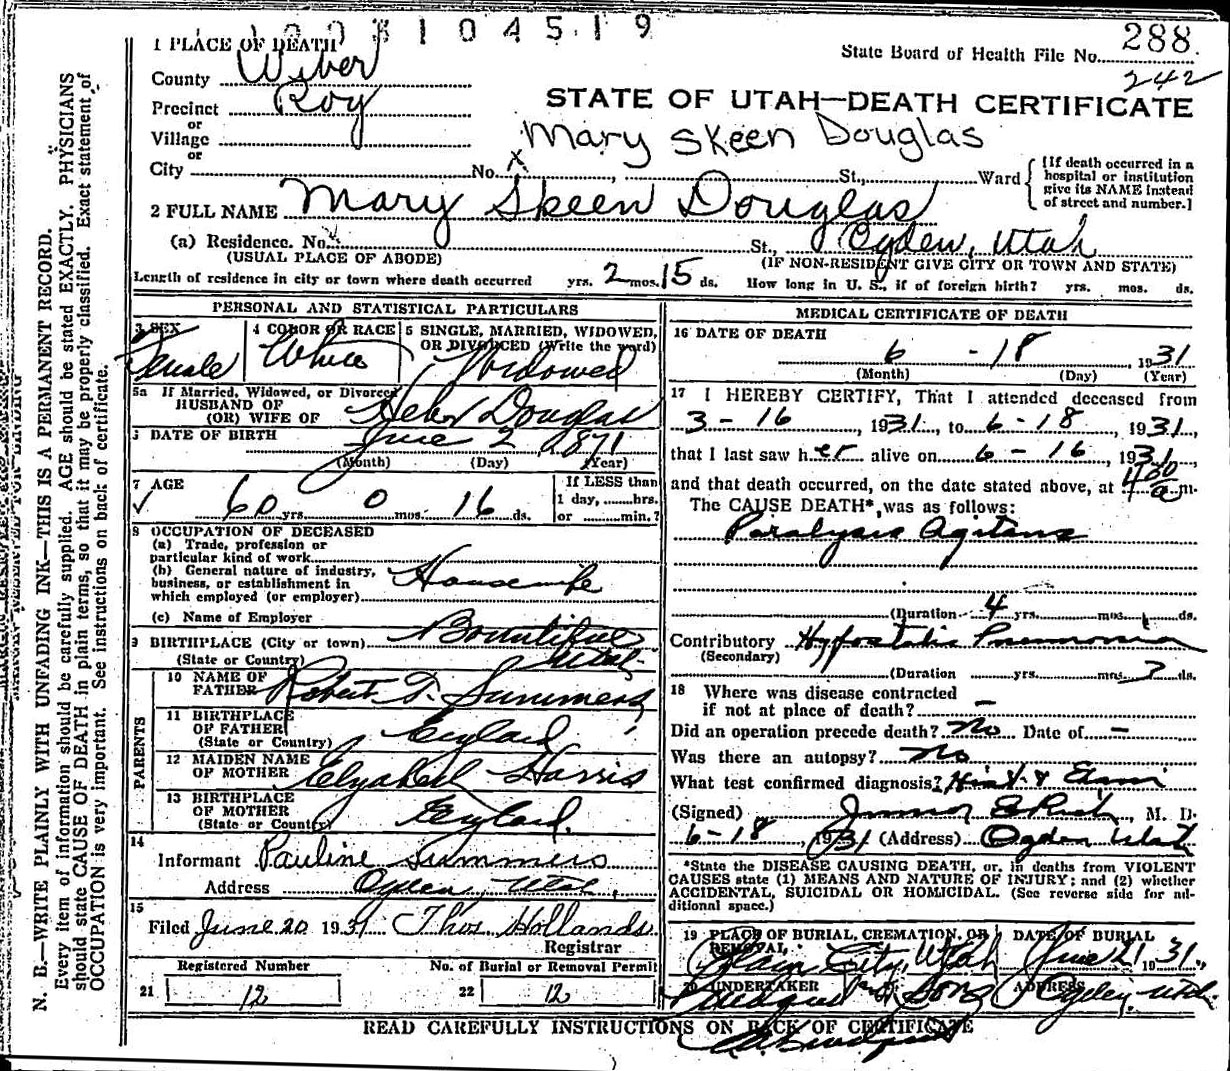 1003104519
288
State Board of Health File No.
242
1 PLACE OF DEATH
County Weber
Precinct Roy
or
Village
or
City No. St., Ward
STATE OF UTAH—DEATH CERTIFICATE
Mary Skeen Douglas
[If death occurred in a
hospital or institution
give its NAME instead
of street and number.]
2 FULL NAME Mary Skeen Douglas
(a) Residence. No. St., Ogden, Utah
(USUAL PLACE OF ABODE) (IF NON-RESIDENT GIVE CITY OR TOWN AND STATE)
Length of residence in city or town where death occurred yrs. 2 mos. 15 ds. How long in U. S., if of foreign birth? yrs. mos. ds.
PERSONAL AND STATISTICAL PARTICULARS
3 SEX Female
4 COLOR OR RACE White
5 SINGLE, MARRIED, WIDOWED,
OR DIVORCED (Write the word)
Widowed
5a If Married, Widowed, or Divorced
HUSBAND OF
(OR) WIFE OF Heber Douglas
6 DATE OF BIRTH June 2 1871
(Month) (Day) (Year)
7 AGE
60 yrs. 0 mos. 16 ds.
If LESS than
1 day, hrs.
or min.?
8 OCCUPATION OF DECEASED
(a) Trade, profession or
particular kind of work
(b) General nature of industry,
business, or establishment in
which employed (or employer) Housewife
(c) Name of Employer
9 BIRTHPLACE (City or town) Bountiful
(State or Country) Utah
PARENTS
10 NAME OF
FATHER Robert T. Summers
11 BIRTHPLACE
OF FATHER
(State or Country) England
12 MAIDEN NAME
OF MOTHER Harris
13 BIRTHPLACE
OF MOTHER
(State or Country) England
14
Informant Pauline Summers
Address Ogden, Utah.
15
Filed June 20 1931 Thos Hollands
Registrar
Registered Number No. of Burial or Removal Permit
21 12 22 12
MEDICAL CERTIFICATE OF DEATH
16 DATE OF DEATH
6 - 18, 1931
(Month) (Day) (Year)
17 I HEREBY CERTIFY, That I attended deceased from
3 - 16, 1931, to 6 - 18, 1931,
that I last saw her alive on 6 - 16, 1931,
and that death occurred, on the date stated above, at 4 00 a m.
The CAUSE DEATH*, was as follows:
Paralysis Agitans
(Duration 4 yrs. mos. ds.
Contributory Hypostatic Pneumonia
(Secondary)
(Duration yrs. mos. 3 ds.
18 Where was disease contracted
if not at place of death? -
Did an operation precede death? No Date of -
Was there an autopsy? No
What test confirmed diagnosis? Hist. & Exam
(Signed) Rich, M. D.
6-18 1931 (Address) Ogden Utah
*State the DISEASE CAUSING DEATH, or, in deaths from VIOLENT
CAUSES state (1) MEANS AND NATURE OF INJURY; and (2) whether
ACCIDENTAL, SUICIDAL OR HOMICIDAL. (See reverse side for ad-
ditional space.)
19 PLACE OF BURIAL, CREMATION, OR
REMOVAL DATE OF BURIAL
Plain City, Utah June 21 1931.
20 UNDERTAKER ADDRESS
& Sons Ogden, Utah.
READ CAREFULLY INSTRUCTIONS ON BACK OF CERTIFICATE
N. B.—WRITE PLAINLY WITH UNFADING INK—THIS IS A PERMANENT RECORD.
Every item of information should be carefully supplied. AGE should be stated EXACTLY. PHYSICIANS
should state CAUSE OF DEATH in plain terms, so that it may be properly classified. Exact statement of
OCCUPATION is very important. See instructions on back of certificate.